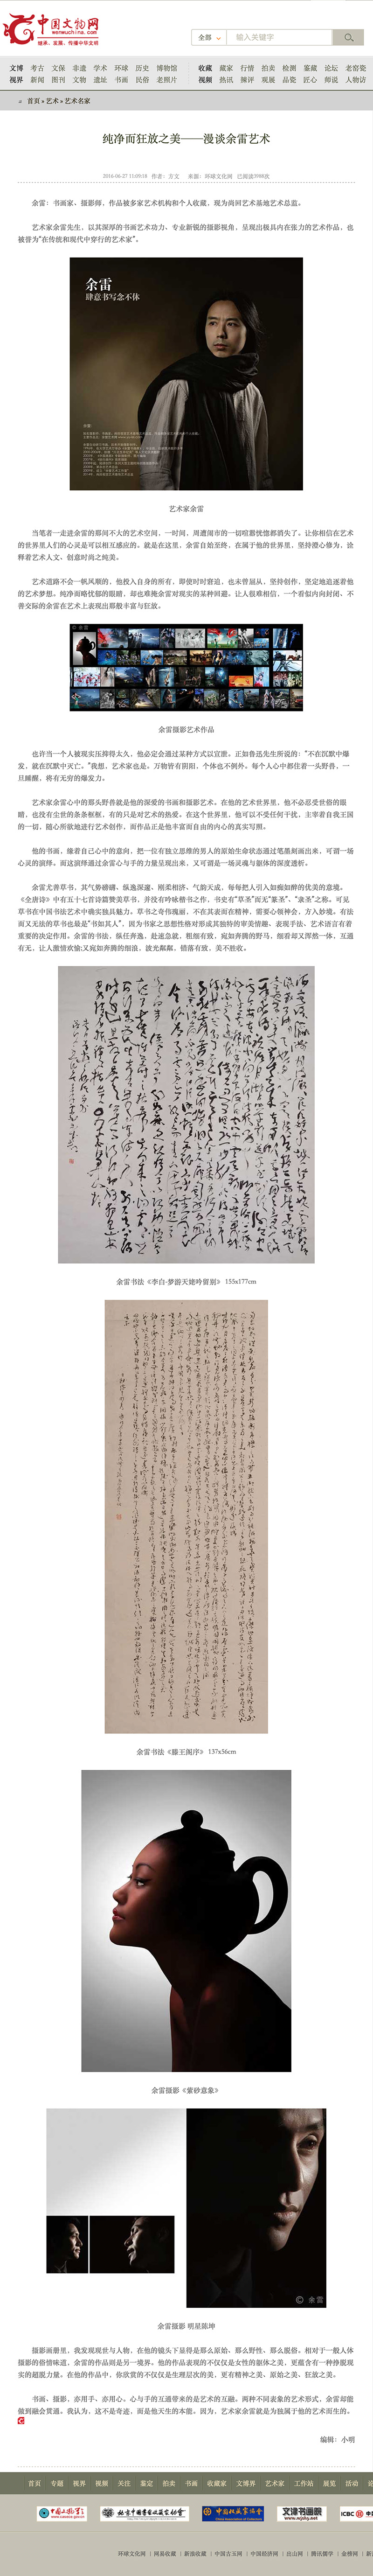 中国文物网
wenwuchina.com
继承、发展、传播中华文明
全部
输入关键字
文博 考古 文保 非遗 学术 环球 历史 博物馆
视界 新闻 图刊 文物 遗址 书画 民俗 老照片
收藏 藏家 行情 拍卖 检测 鉴藏 论坛 老窑瓷
视频 热讯 辣评 观展 品瓷 匠心 师说 人物访
首页 » 艺术 » 艺术名家
纯净而狂放之美——漫谈余雷艺术
2016-06-27 11:09:16 作者：方文 来源：环球文化网 已阅读3988次
余雷：书画家、摄影师，作品被多家艺术机构和个人收藏，现为尚同艺术基地艺术总监。
艺术家余雷先生，以其深厚的书画艺术功力、专业新锐的摄影视角，呈现出极具内在张力的艺术作品，也
被誉为“在传统和现代中穿行的艺术家”。
余雷
肆意书写念不休
艺术家余雷
当笔者一走进余雷的那间不大的艺术空间，一时间，周遭闹市的一切喧嚣恍惚都消失了。让你相信在艺术
的世界里人们的心灵是可以相互感应的。就是在这里，余雷自始至终，在属于他的世界里，坚持澄心修为，诠
释着艺术人文、创意时尚之纯美。
艺术道路不会一帆风顺的，他投入自身的所有，即使时时窘迫，也未曾屈从，坚持创作，坚定地追逐着他
的艺术梦想。纯净而略忧郁的眼睛，却也难掩余雷对现实的某种回避。让人很难相信，一个看似内向封闭、不
善交际的余雷在艺术上表现出那般丰富与狂放。
© 余雷
余雷摄影艺术作品
也许当一个人被现实压抑得太久，他必定会通过某种方式以宣泄。正如鲁迅先生所说的：“不在沉默中爆
发，就在沉默中灭亡。”我想，艺术家也是。万物皆有阴阳，个体也不例外。每个人心中都住着一头野兽，一
旦睡醒，将有无穷的爆发力。
艺术家余雷心中的那头野兽就是他的深爱的书画和摄影艺术。在他的艺术世界里，他不必忍受世俗的眼
睛，也没有尘世的条条框框，有的只是对艺术的热爱。在这个世界里，他可以不受任何干扰，主宰着自我王国
的一切，随心所欲地进行艺术创作，而作品正是他丰富而自由的内心的真实写照。
他的书画，缘着自己心中的意向，把一位有独立思维的男人的原始生命状态通过笔墨刻画出来，可谓一场
心灵的洄绎。而这洄绎通过余雷心与手的力量呈现出来，又可谓是一场灵魂与躯体的深度透析。
余雷尤善草书，其气势磅礴，纵逸深邃、刚柔相济，气韵天成，每每把人引入如痴如醉的优美的意境。
《全唐诗》中有五十七首诗篇赞美草书，并没有吟咏楷书之作，书史有“草圣”而无“篆圣”、“隶圣”之称。可见
草书在中国书法艺术中确实独具魅力。草书之奇伟瑰丽，不在其表面在精神，需要心领神会，方入妙境。有法
而又无法的草书也最是“书如其人”，因为书家之思想性格对形成其独特的审美情趣、表现手法、艺术语言有着
重要的决定作用。余雷的书法，纵任奔逸、赴速急就，粗细有致，宛如奔腾的野马，细看却又浑然一体，互通
有无，让人激情欢愉;又宛如奔腾的细浪、波光粼粼，错落有致、美不胜收。
余雷书法《李白-梦游天姥吟留别》 155x177cm
余雷书法《滕王阁序》 137x56cm
余雷摄影《紫砂意象》
© 余雷
余雷摄影 明星陈坤
摄影画册里，我发现现世与人物，在他的镜头下显得是那么原始、那么野性、那么脱俗。相对于一般人体
摄影的俗情味道，余雷的作品则是另一境界。他的作品表现的不仅仅是女性的躯体之美，更蕴含有一种挣脱现
实的超脱力量。在他的作品中，你欣赏的不仅仅是生理层次的美，更有精神之美、原始之美、狂放之美。
书画、摄影，亦用手、亦用心。心与手的互通带来的是艺术的互融。两种不同表象的艺术形式，余雷却能
做到融会贯通。我认为，这不是奇迹，而是他天生的本能。因为，艺术家余雷就是为独属于他的艺术而生的。
编辑：小明
首页 专题 视界 视频 关注 鉴定 拍卖 书画 收藏家 文博界 艺术家 工作站 展览 活动
中国收藏家协会
文津书画院
www.wjshy.net
ICBC
环球文化网 | 网易收藏 | 新浪收藏 | 中国古玉网 | 中国经济网 | 出山网 | 腾讯儒学 | 金榜网